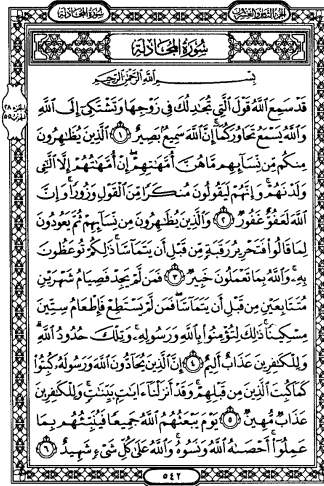 الجزء الثامن والعشرون
سورة المجادلة
الجزء ٢٨
الحزب ٥٥
سُورَةُ المُجَادلة
بِسْمِ ٱللَّهِ ٱلرَّحْمَٰنِ ٱلرَّحِيمِ
قَدْ سَمِعَ ٱللَّهُ قَوْلَ ٱلَّتِي تُجَٰدِلُكَ فِي زَوْجِهَا وَتَشْتَكِيٓ إِلَى ٱللَّهِ
وَٱللَّهُ يَسْمَعُ تَحَاوُرَكُمَآ إِنَّ ٱللَّهَ سَمِيعٌۢ بَصِيرٌ ١ ٱلَّذِينَ يُظَٰهِرُونَ
مِنكُم مِّن نِّسَآئِهِم مَّا هُنَّ أُمَّهَٰتِهِمْ إِنْ أُمَّهَٰتُهُمْ إِلَّا ٱلَّٰٓـِٔي
وَلَدْنَهُمْ وَإِنَّهُمْ لَيَقُولُونَ مُنكَرًا مِّنَ ٱلْقَوْلِ وَزُورًا وَإِنَّ
ٱللَّهَ لَعَفُوٌّ غَفُورٌ ٢ وَٱلَّذِينَ يُظَٰهِرُونَ مِن نِّسَآئِهِمْ ثُمَّ يَعُودُونَ
لِمَا قَالُوا۟ فَتَحْرِيرُ رَقَبَةٍ مِّن قَبْلِ أَن يَتَمَآسَّا ذَٰلِكُمْ تُوعَظُونَ
بِهِۦ وَٱللَّهُ بِمَا تَعْمَلُونَ خَبِيرٌ ٣ فَمَن لَّمْ يَجِدْ فَصِيَامُ شَهْرَيْنِ
مُتَتَابِعَيْنِ مِن قَبْلِ أَن يَتَمَآسَّا فَمَن لَّمْ يَسْتَطِعْ فَإِطْعَامُ سِتِّينَ
مِسْكِينًا ذَٰلِكَ لِتُؤْمِنُوا۟ بِٱللَّهِ وَرَسُولِهِۦ وَتِلْكَ حُدُودُ ٱللَّهِ
وَلِلْكَٰفِرِينَ عَذَابٌ أَلِيمٌ ٤ إِنَّ ٱلَّذِينَ يُحَآدُّونَ ٱللَّهَ وَرَسُولَهُۥ كُبِتُوا۟
كَمَا كُبِتَ ٱلَّذِينَ مِن قَبْلِهِمْ وَقَدْ أَنزَلْنَآ ءَايَٰتٍۭ بَيِّنَٰتٍ وَلِلْكَٰفِرِينَ
عَذَابٌ مُّهِينٌ ٥ يَوْمَ يَبْعَثُهُمُ ٱللَّهُ جَمِيعًا فَيُنَبِّئُهُم بِمَا
عَمِلُوٓا۟ أَحْصَىٰهُ ٱللَّهُ وَنَسُوهُ وَٱللَّهُ عَلَىٰ كُلِّ شَيْءٍ شَهِيدٌ ٦
٥٤٢